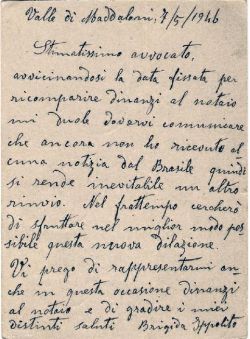 Valle di Maddaloni, 7/5/1946
Stimatissimo avvocato,
avvicinandosi la data fissata per
ricomparire dinanzi al notaio
mi duole dovervi comunicare
che ancora non ho ricevuto al
cuna notizia dal Brasile quindi
si rende inevitabile un altro
rinvio. Nel frattempo cercherò
di sfruttare nel miglior modo pos
sibile questa nuova dilazione.
Vi prego di rappresentarmi an
che in questa occasione dinanzi
al notaio e di gradire i miei
distinti saluti Brigida Ippolito